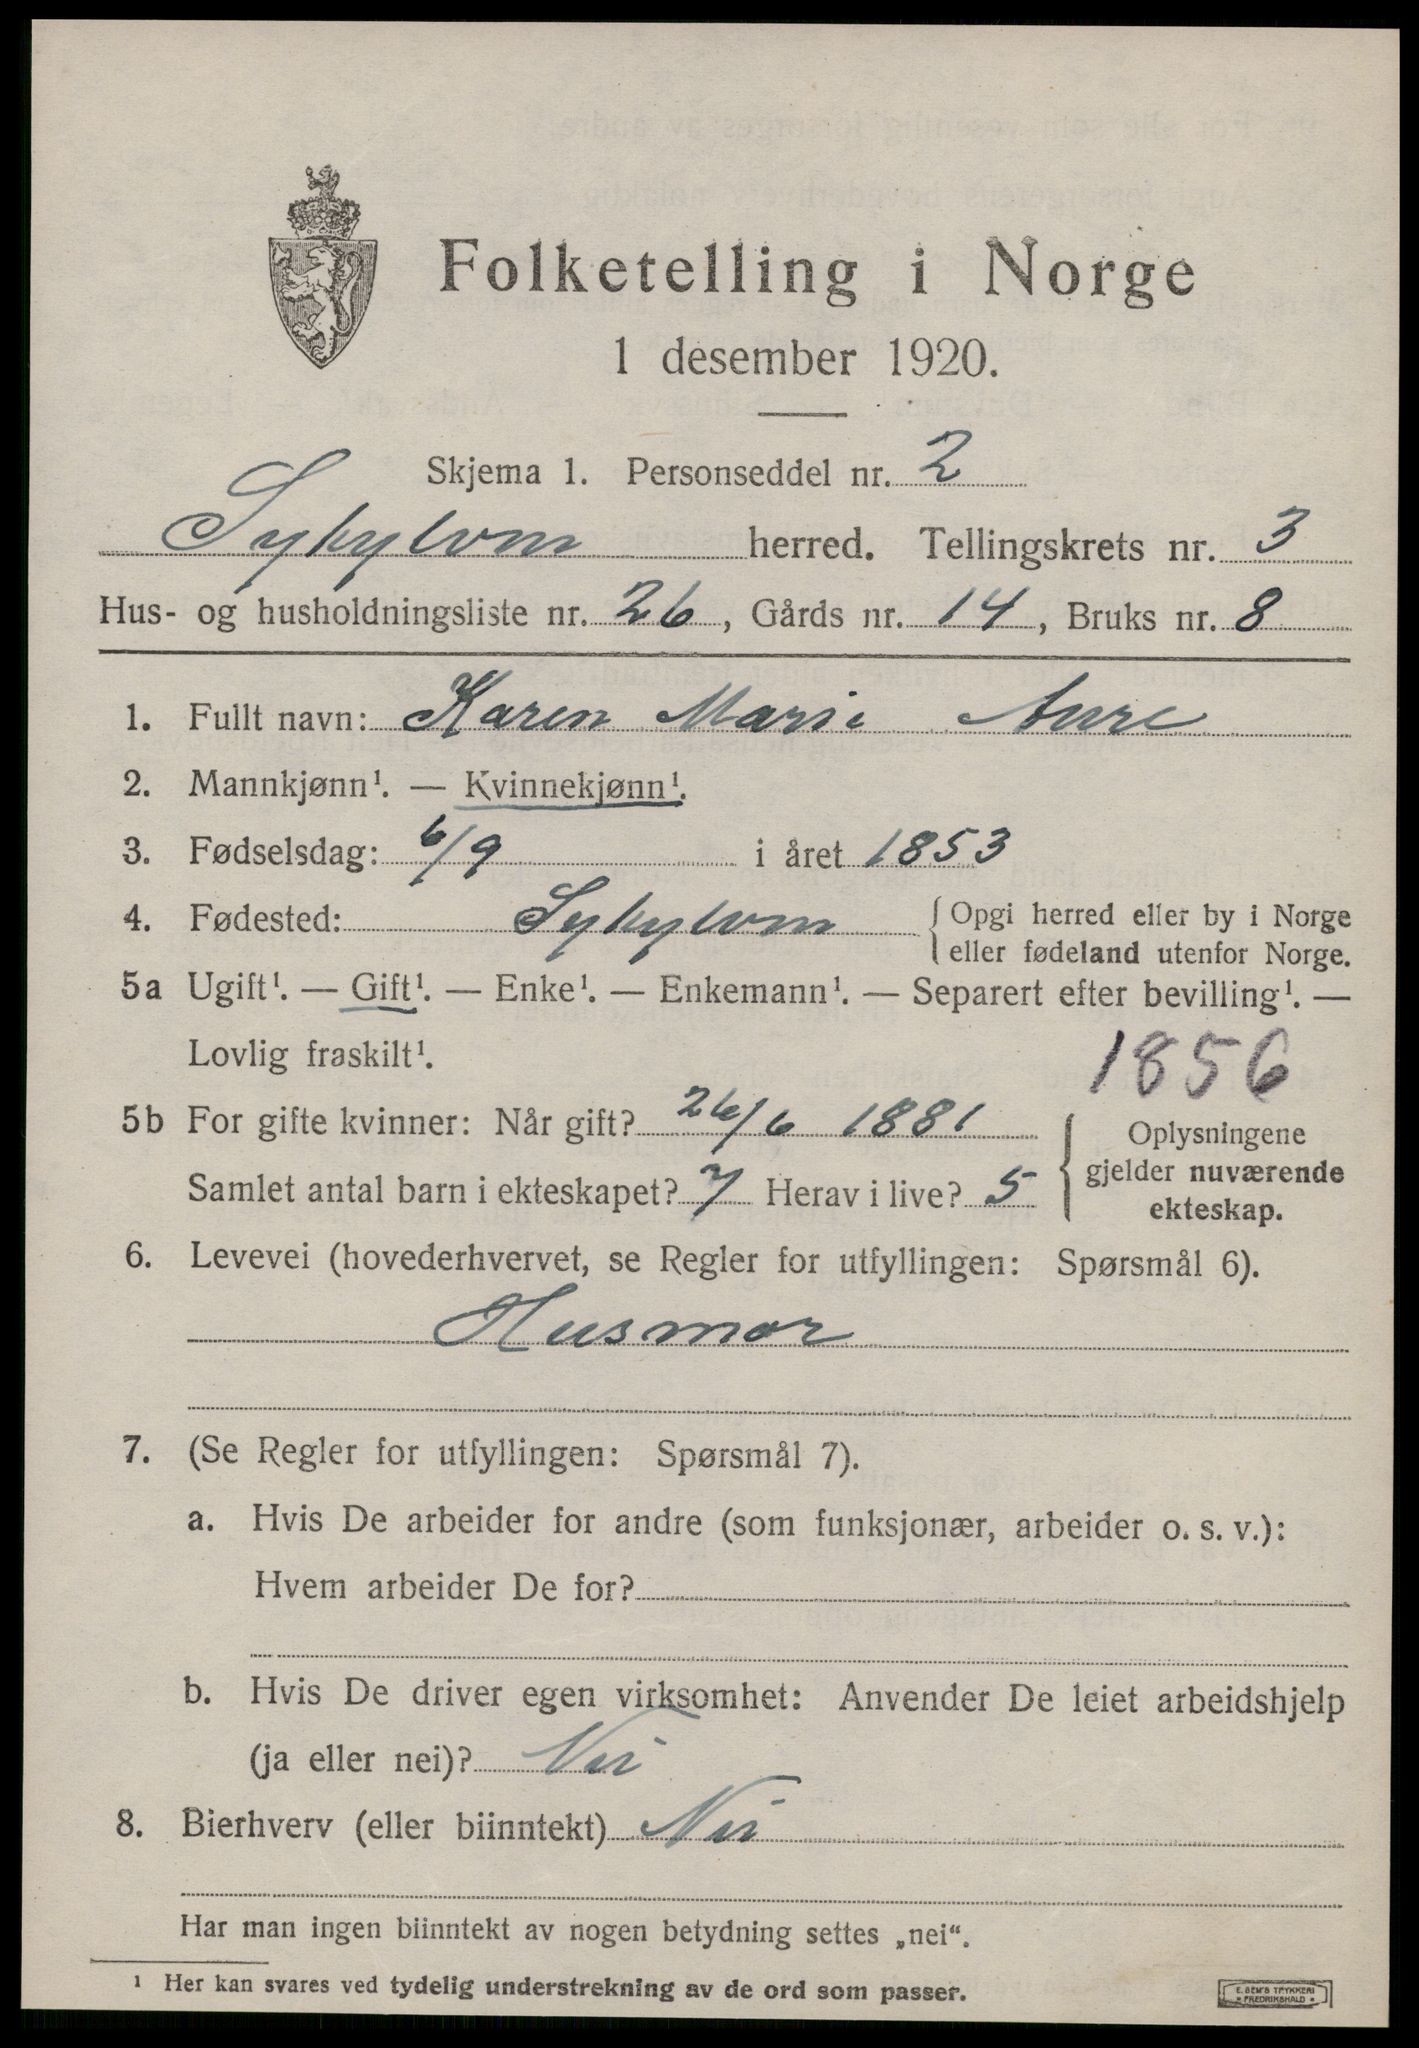 Folketelling i Norge
1 desember 1920.
Skjema 1. Personseddel nr. 2
Sykylvm herred. Tellingskrets nr. 3
Hus- og husholdningsliste nr. 26, Gårds nr. 14, Bruks nr. 8
1. Fullt navn: Karen Marie Aure
2. Mannkjønn¹. — Kvinnekjønn¹.
3. Fødselsdag: 6/9 i året 1853
4. Fødested: Sykylvm {Opgi herred eller by i Norge
eller fødeland utenfor Norge.
5a Ugift¹. — Gift¹. — Enke¹. — Enkemann¹. — Separert efter bevilling¹. —
Lovlig fraskilt¹.
1856
5b For gifte kvinner: Når gift? 26/6 1881
Samlet antal barn i ekteskapet? 7 Herav i live? 5
{Oplysningene
gjelder nuværende
ekteskap.
6. Levevei (hovederhvervet, se Regler for utfyllingen: Spørsmål 6).
Husmor
7. (Se Regler for utfyllingen: Spørsmål 7).
a. Hvis De arbeider for andre (som funksjonær, arbeider o. s. v.):
Hvem arbeider De for?
b. Hvis De driver egen virksomhet: Anvender De leiet arbeidshjelp
(ja eller nei)? Nei
8. Bierhverv (eller biinntekt) Nei
Har man ingen biinntekt av nogen betydning settes „nei“.
¹ Her kan svares ved tydelig understrekning av de ord som passer.
E. SEM'S TRYKKERI
FREDRIKSHALD